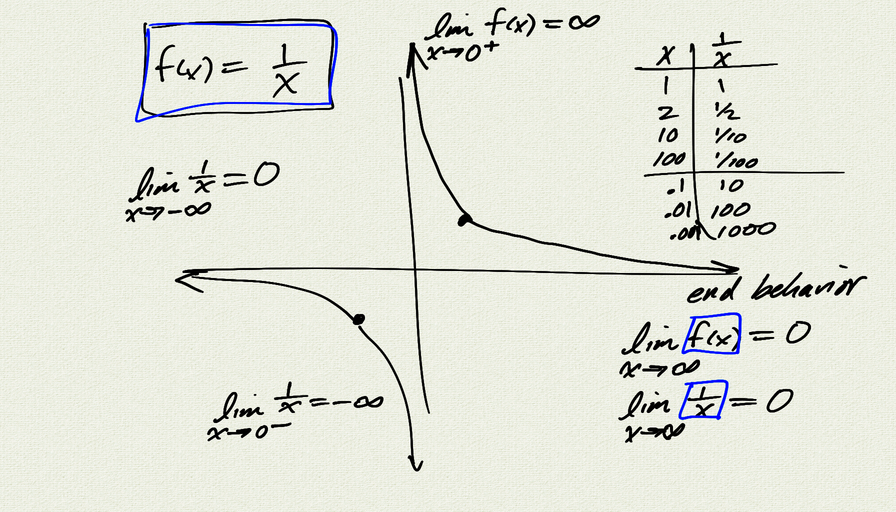 f(x) = 1/x
lim f(x) = ∞
x→0⁺
x | 1/x
1 | 1
2 | 1/2
10 | 1/10
100 | 1/100
.1 | 10
.01 | 100
.001 | 1000
lim 1/x = 0
x→-∞
end behavior
lim f(x) = 0
x→∞
lim 1/x = 0
x→∞
lim 1/x = -∞
x→0⁻